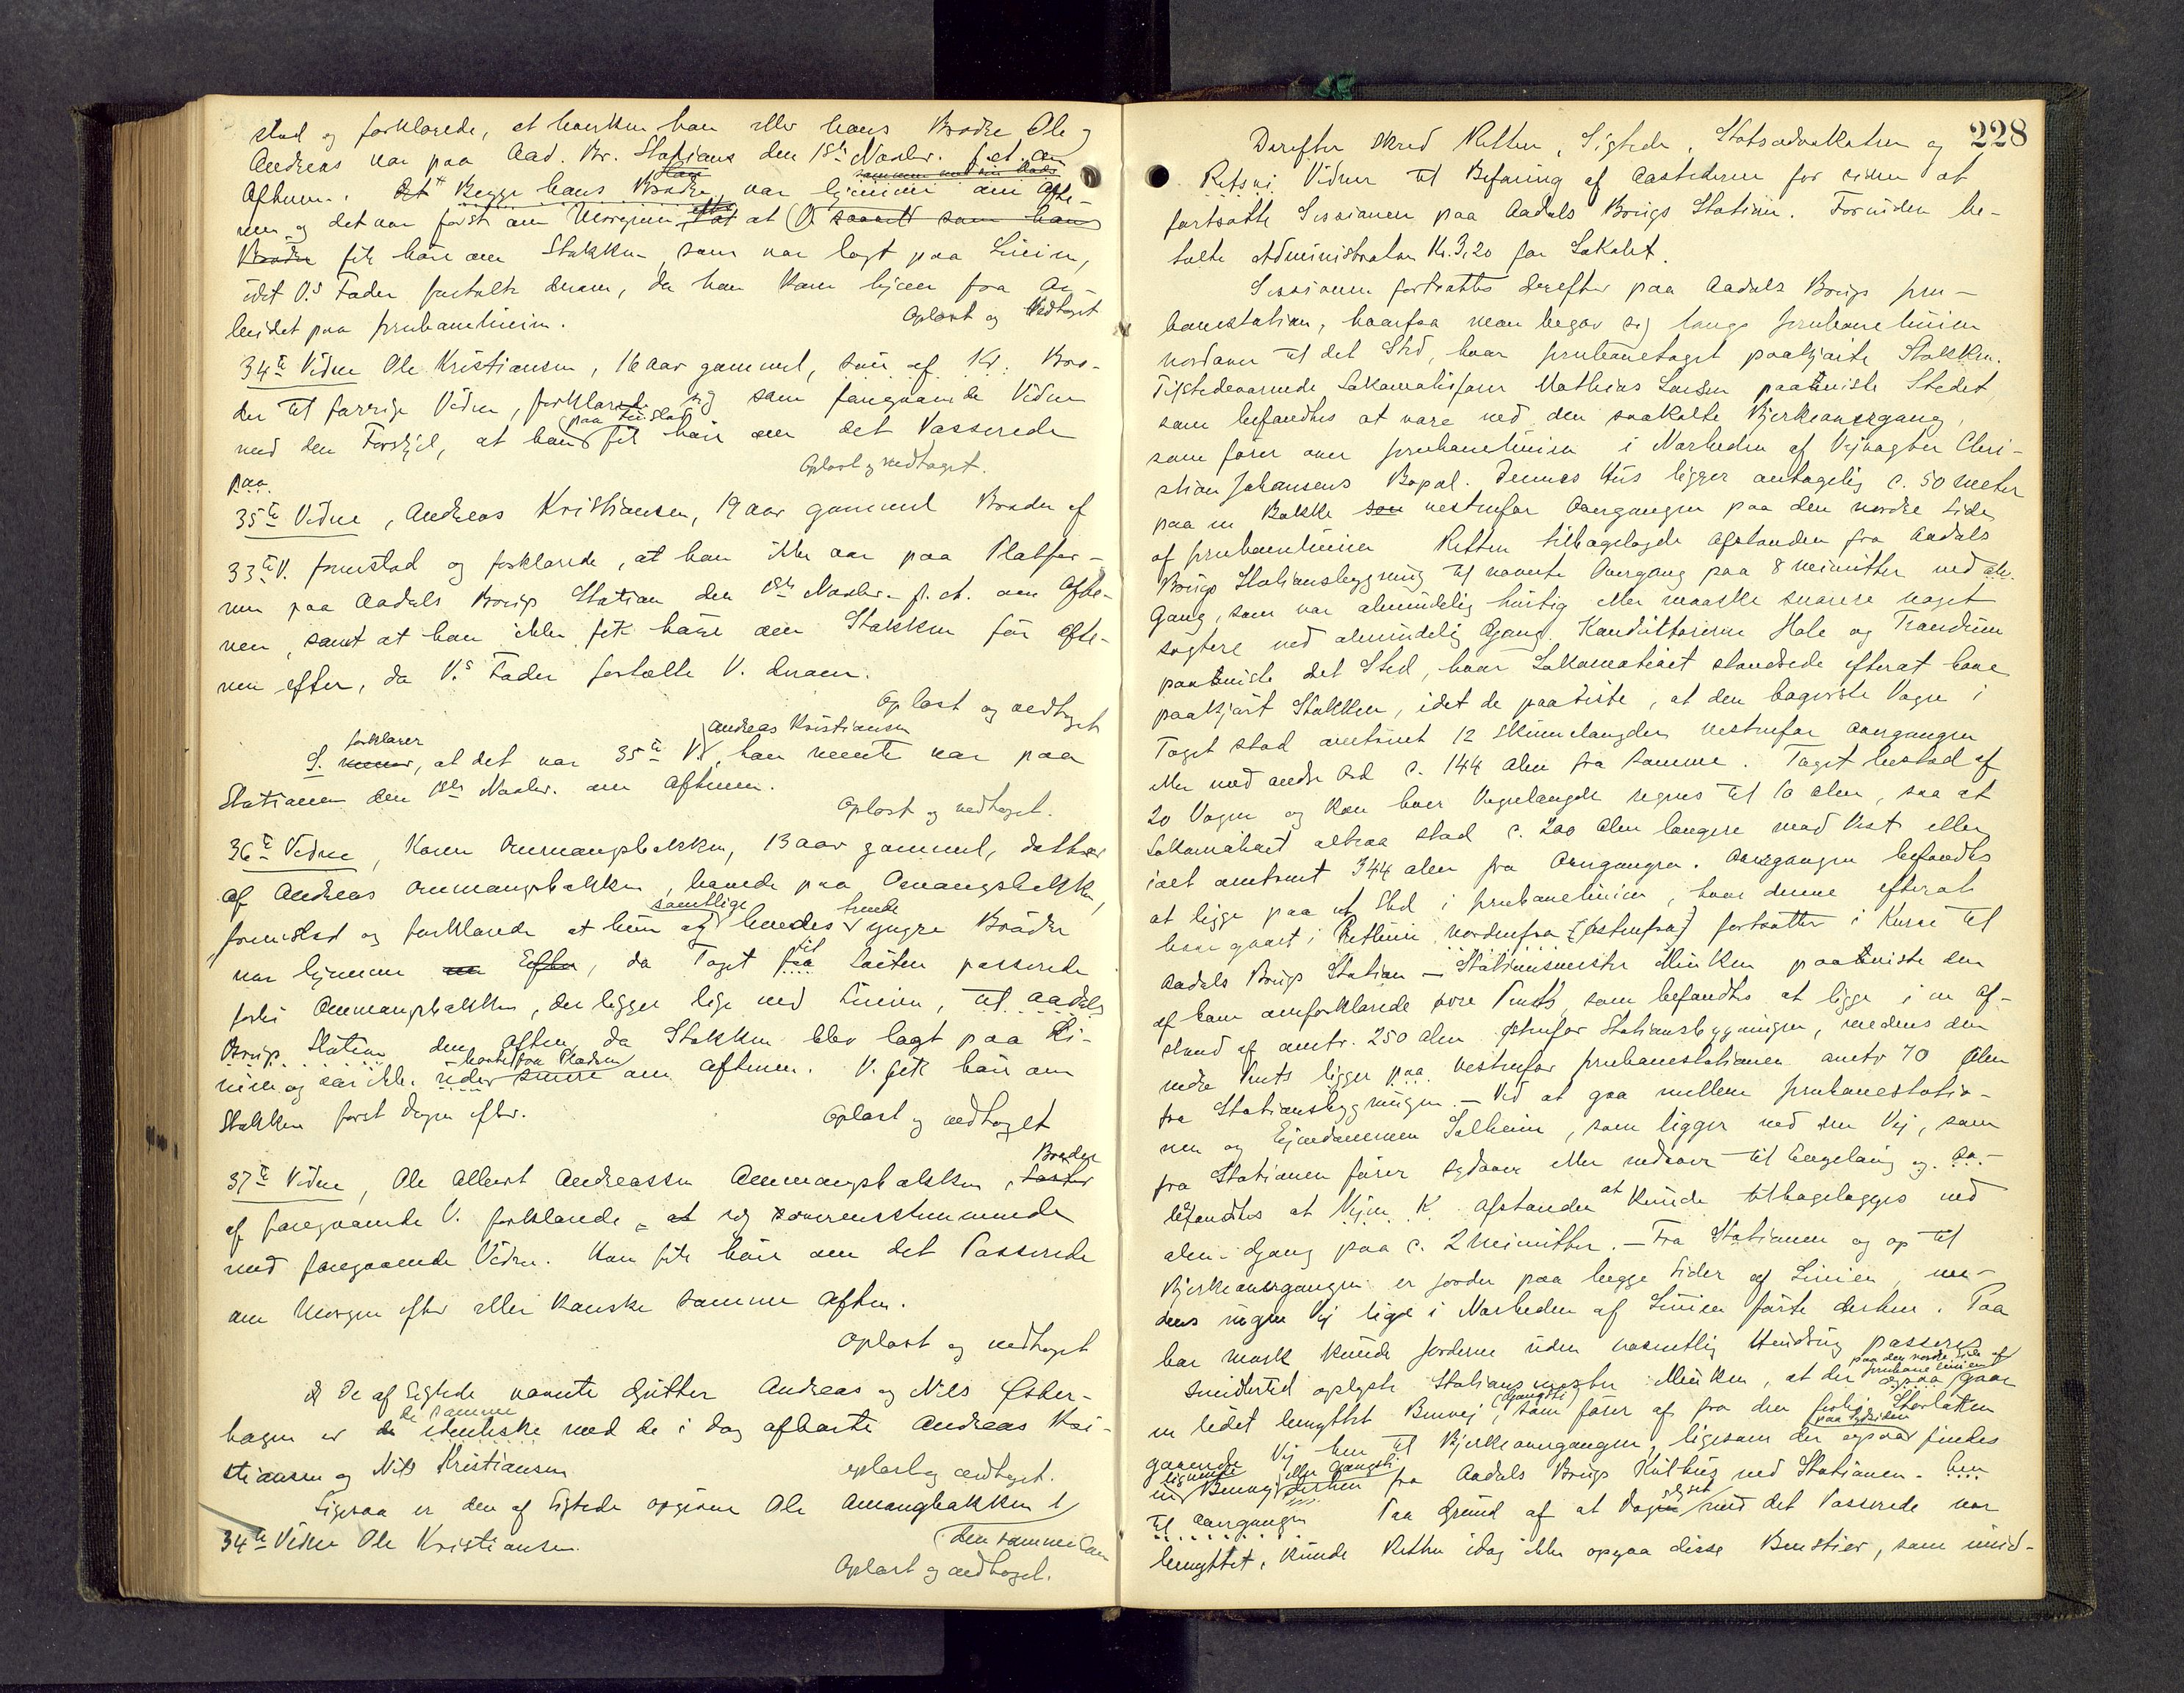 stod og forklarede, at hverken han eller hans Brødre Ole og
Andreas var paa Aad. Br. Stations den 18de Novbr. f. A. om
Aftenen. Begge hans Brødre var hjemme om Afte-
nen og det var først om Morgenen efter at V. saavel som hans
Brødre fik høre om Stokken, som var lagt paa Linien,
idet V.s Fader fortalte derom, da han kom hjem fra Ar-
beidet paa Jernbanelinien.
Oplæst og Vedtaget
34te Vidne Ole Kristiansen, 16 aar gammel, søn af Kr. Bro-
der til forrige Vidne, forklarede sig som foregaaende Vidne
med den Forskjel, at han fik høre om det Passerede
paa Tirsdag
Oplæst og vedtaget.
paa
35te Vidne, Andreas Kristiansen, 19 aar gammel Broder af
33te V. fremstod og forklarede, at han ikke var paa Platfor-
men paa Aadals Brugs Station den 18de Novbr. f. A. om Afte-
nen, samt at han ikke fik høre om Stokken før Afte-
nen efter, da V.s Fader fortalte V. derom.
Oplæst og vedtaget
forklarer Andreas Kristiansen
S. mener, at det var 35te V. han mente var paa
Stationen den 18de Novbr. om Aftenen.
Oplæst og vedtaget.
36te Vidne, Karen Ommangsbakken, 13 aar gammel, datter
af Andreas Ommangsbakken, boende paa Omangsbakken,
samtlige trende
fremstod og forklarede at hun og hendes yngre Brødre
til
var hjemme Efter, da Toget fra Løiten passerede
forbi Ommangsbakken, der ligger lige ved Linien, til Aadals
Brugs Station den Aften, da Stokken blev lagt paa Li-
borte fra Pladsen
nien og var ikke under senere om Aftenen. V. fik høre om
Stokken først Dagen efter.
Oplæst og vedtaget
Broder
37te Vidne, Ole Albert Andreassen Ommangsbakken, Søster
af foregaaende V. forklarede at sig overensstemmende
med foregaaende Vidne. Han fik høre om det Passerede
om Morgen efter eller kanske samme Aften.
Oplæst og vedtaget
De af Sigtede nævnte Gutter Andreas og Nils Øster-
de samme
hagen er de identiske med de i Dag afhørte Andreas Kri-
stiansen og Nils Kristiansen
oplæst og vedtaget.
Ligesaa er den af Sigtede opgivne Ole Amangbakken
den samme som
34te Vidne Ole Kristiansen.
Oplæst og vedtaget.
228
Derefter skred Retten, Sigtede, Statsadvokaten og
Vidner til Befaring af Aastederne for siden at
fortsætte Sessionen paa Aadals Brugs Station. Forinden be-
talte Administrator Kr. 3,20 for Lokalet.
Sessionen fortsattes derefter paa Aadals Brugs Jern-
banestation, hvorfra man begav sig langs Jernbanelinien
nordover til det Sted, hvor Jernbanetoget paakjørte Stokken.
Tilstedeværende Lokomotivfører Mathias Larsen paaviste Stedet,
som befandtes at være ved den saakaldte Bjerkeovergang,
som fører over Jernbanelinien i Nærheden af Vejvogter Chri-
stian Johansens Bopæl. Dennes Hus ligger antagelig c. 50 meter
paa en Bakke vestenfor Overgangen paa den nordre Side
af Jernbanelinien Retten tilbagelagde Afstanden fra Aadals
Brugs Stationsbygning til nævnte Overgang paa 8 minutter ved alm.
Gang, som var almindelig hurtig eller maaske snarere noget
sagtere ved almindelig Gang. Konduktørerne Hole og Trandum
paaviste det Sted, hvor Lokomotivet standsede efterat have
paakjørt Stokken, idet de paaviste, at den bagerste Vogn i
Toget stod omtrent 12 Skinnelængder vestenfor Overgangen
eller med andre Ord c. 144 Alen fra samme. Toget bestod af
20 Vogne og kan hver Vognlængde regnes til 10 alen, saa at
Lokomotivet altsaa stod c. 200 Alen længere mod Vest eller
ialt omtrent 344 alen fra Overgangen. Overgangen befandtes
at ligge paa et Sted i Jernbanelinien, hvor denne efterat
have gaaet i Retlinie nordenfra (østenfra) fortsætter i Kurve til
Aadals Brugs Station – Stationsmester Munken paaviste den
af ham omforklarede øvre Pents, som befandtes at ligge i en Af-
stand af omtr. 250 Alen østenfor Stationsbygningen, medens den
nedre Pents ligger paa vestenfor Jernbanestationen omtr 70 Alen
fra Stationsbygningen. – Ved at gaa mellem Jernbanestatio-
nen og Ejendommen Solheim, som ligger ved den Vej, som
fra Stationen fører sydover eller nedover til Engelaug og
befandtes at Vejen K. Afstanden at kunde tilbagelægges ved
alm. Gang paa c. 2 Minutter. – Fra Stationen og op til
Bjerkeovergangen er Jorder paa begge Sider af Linien, me-
dens ingen Vej lige i Nærheden af Linien førte derhen. Paa
bar Mark kunde Jorderne uden væsentlig Hindring passeres
paa den nordre Side af Jernbanelinien
Imidlertid oplyste Stationsmester Munken, at der ogsaa gaar
(Gangsti)
en lidet benyttet Benvej, som fører af fra den forbi Storløkken
paa Sydsiden
gaaende Vej hen til Bjerkeovergangen, ligesom der ogsaa findes
lignende eller Gangsti
en Benvej derhen fra Aadals Brugs Kulhus ved Stationen. hen
til Overgangen Paa Grund af at Vogn med det Passerede var
benyttet, kunde Retten idag ikke opgaa disse Benstier, som imid-